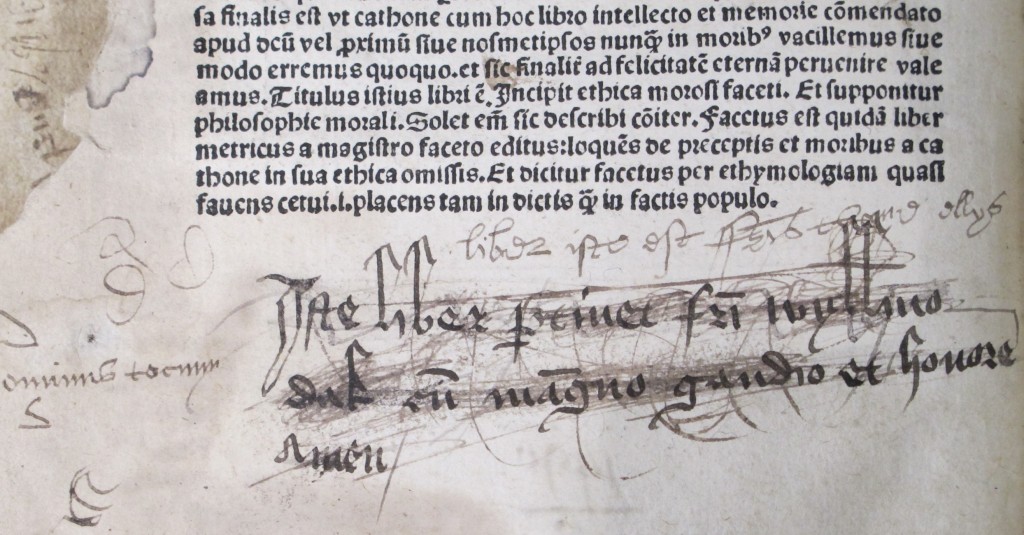 sa finalis est vt cathone cum hoc libro intellecto et memorie cõmendato
apud deũ vel ꝓximũ siue nosmetipsos nunq̃ in morib⁹ vacillemus siue
modo erremus quoquo.et sic finalit̃ ad felicitatẽ eternã peruenire vale
amus.Titulus istius libri ẽ.Incipit ethica morosi faceti. Et supponitur
philosophie morali.Solet em̃ sic describi cõiter.Facetus est quidã liber
metricus a magistro faceto editus:loquẽs de preceptis et moribus a ca
thone in sua ethica omissis.Et dicitur facetus per ethymologiam quasi
fauens cetui.i.placens tam in dictis q̃ in factis populo.
liber iste est
Iste liber ꝑtinet fr̃i wyllmo
dak cũ mãgno gaudio et honore
Amen